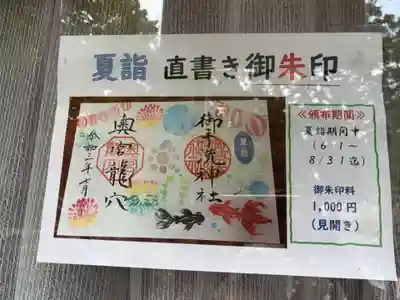 夏詣 直書き御朱印
御手洗神社
夏詣
奥宮龍穴
令和三年七月
≪頒布期間≫
夏詣期間中
(6/1~
8/31迄)
御朱印料
1,000円
(見開き)